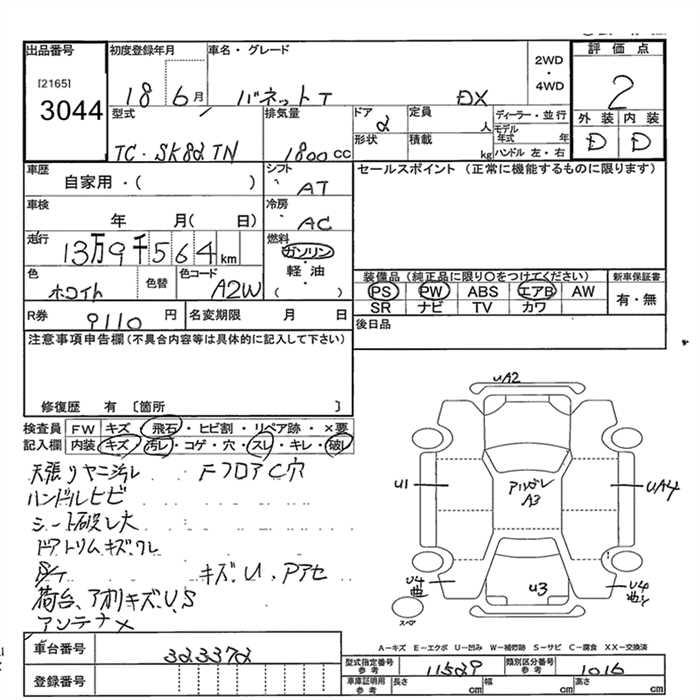 出品番号
[2165]
3044
初度登録年月
18 6月
車名・グレード
バネットT DX
2WD
・
4WD
評価点
2
外装 内装
D D
型式
TC・SK82TN
排気量
1800CC
ドア
2
形状
定員
人
積載
kg
ディーラー・並行
モデル年式 年
ハンドル 左・右
車歴
自家用・( )
シフト
AT
セールスポイント (正常に機能するものに限ります)
車検
年 月( 日)
冷房
AC
走行
13万9千564km
燃料
ガソリン
軽油
( )
色
ホワイト
色替
色コード
A2W
装備品(純正品に限り○をつけてください)
PS PW ABS エアB AW
SR ナビ TV カワ
新車保証書
有・無
R券
9110円
名変期限 月 日
後日品
注意事項申告欄(不具合内容等は具体的に記入して下さい)
修復歴 有 〔箇所 〕
検査員記入欄
FW キズ・飛石・ヒビ割・リペア跡・×要
内装 キズ・汚レ・コゲ・穴・スレ・キレ・破レ
天張リヤニ汚レ FフロアC穴
ハンドルヒビ
シート破レ大
ドアトリムキズ・ワレ
キズ.U.Pアセ
荷台、アオリキズU、S
アンテナ×
UA2
U1
A3
UA4
U3
U4
曲
U4
曲
スペア
A-キズ E-エクボ U-凹み W-補修跡 S-サビ C-腐食 XX-交換済
車台番号
323372
登録番号
型式指定番号
参考
11529
類別区分番号
参考
1016
車庫証明用
参考
長さ cm
幅 cm
高さ cm